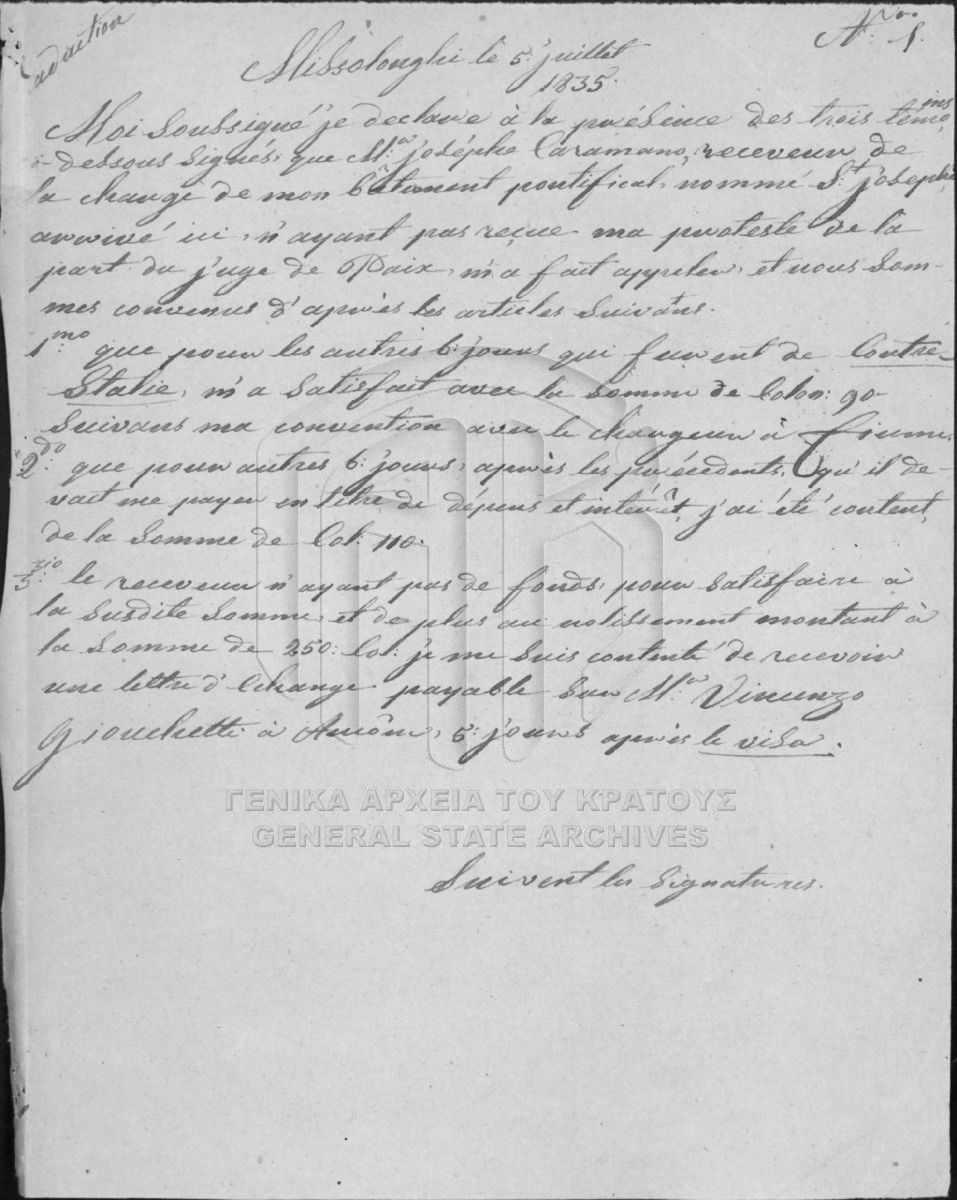 aduction
No. 1.
Missolonghi le 5. juillet
1835.
Moi soussigné je declare à la présence des trois témoins
-dessous signés, que Mr. joséphe Caramano, receveur de
la charge de mon bâtiment pontifical, nommé St. joséph,
arrivé ici, n'ayant pas reçue ma proteste de la
part du juge de Paix, m'a fait appeler, et nous som-
mes convenus d'après les articles suivans.
1mo. que pour les autres 6. jours qui furent de Contre-
Statie, m'a satisfait avec la somme de Colon: 90.
suivans ma convention avec le chargeur à Fiume.
2do. que pour autres 6. jours, après les précédents, qu'il de-
vait me payer en titre de dépens et intérêt, j'ai été content,
de la somme de Col: 110.
3zio. le receveur n'ayant pas de fonds, pour satisfaire à
la susdite somme, et de plus au nolissement montant à
la somme de 250: Col: je me suis contenté de recevoir
une lettre d'échange payable sur Mr. Vincenzo
Giouchetti à Ancône, 5: jours après le visa.
ΓΕΝΙΚΑ ΑΡΧΕΙΑ ΤΟΥ ΚΡΑΤΟΥΣ
GENERAL STATE ARCHIVES
Suivent les signatures.